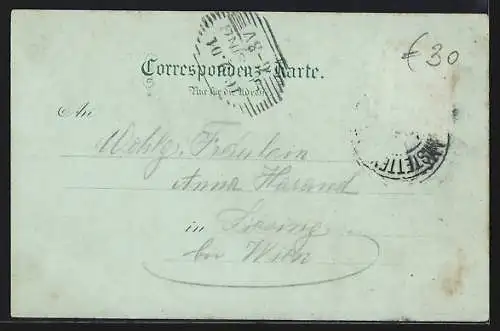 € 30
Correspondenz-Karte.
Nur für die Adresse
An
Wohlg. Fräulein
Anna Hasand
in Liesing
bei Wien
AMSTETTEN